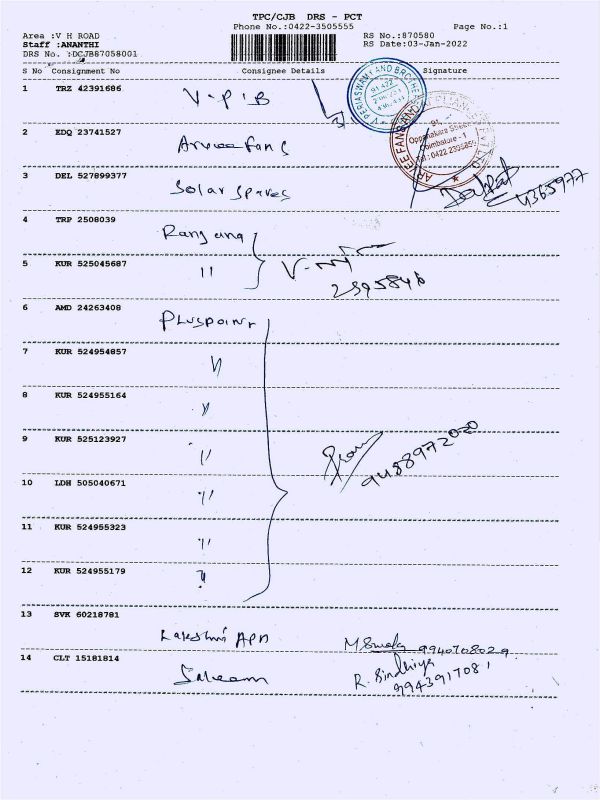 TPC/CJB DRS - PCT
Phone No.:0422-3505555 Page No.:1
Area :V H ROAD RS No.:870580
Staff :ANANTHI RS Date:03-Jan-2022
DRS No. :DCJB87058001
S No Consignment No Consignee Details Signature
1 TRZ 42391686 V-P-I-B
V PERIASWAMY AND BROTHERS
2 EDQ 23741527 Arvee Fans
ARVEE FANS
91,
Oppanakara Street
Coimbatore - 1
Tel : 0422 2395855
3 DEL 527899377 Solar Spares
4365977
4 TRP 2508039 Ranjana
5 KUR 525045687 "
2395846
6 AMD 24263408 Pluspoint
7 KUR 524954857 "
8 KUR 524955164 "
9 KUR 525123927 "
9488972020
10 LDH 505040671 "
11 KUR 524955323 "
12 KUR 524955179 "
13 SVK 60218781
Lakshmi APN 9940708029
14 CLT 15181814 Saleem R. Sindhiya
9943917081